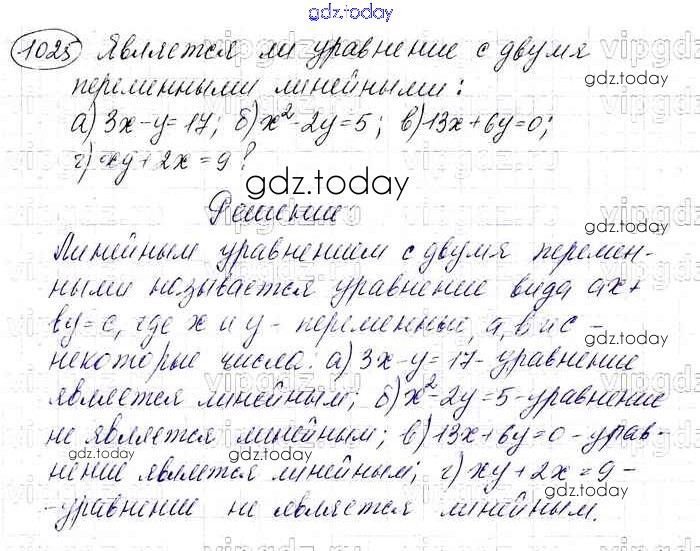 gdz.today
1025 Является ли уравнение с двумя
переменными линейными:
а) 3x-y=17; б) x²-2y=5; в) 13x+6y=0;
г) xy+2x=9?
gdz.today
Решение:
Линейным уравнением с двумя перемен-
ными называется уравнение вида ax+
by=c, где x и y - переменные, a, b и c -
некоторые числа. а) 3x-y=17 - уравнение
является линейным; б) x²-2y=5 - уравнение
не является линейным; в) 13x+6y=0 - урав-
нение является линейным; г) xy+2x=9 -
-уравнение не является линейным.